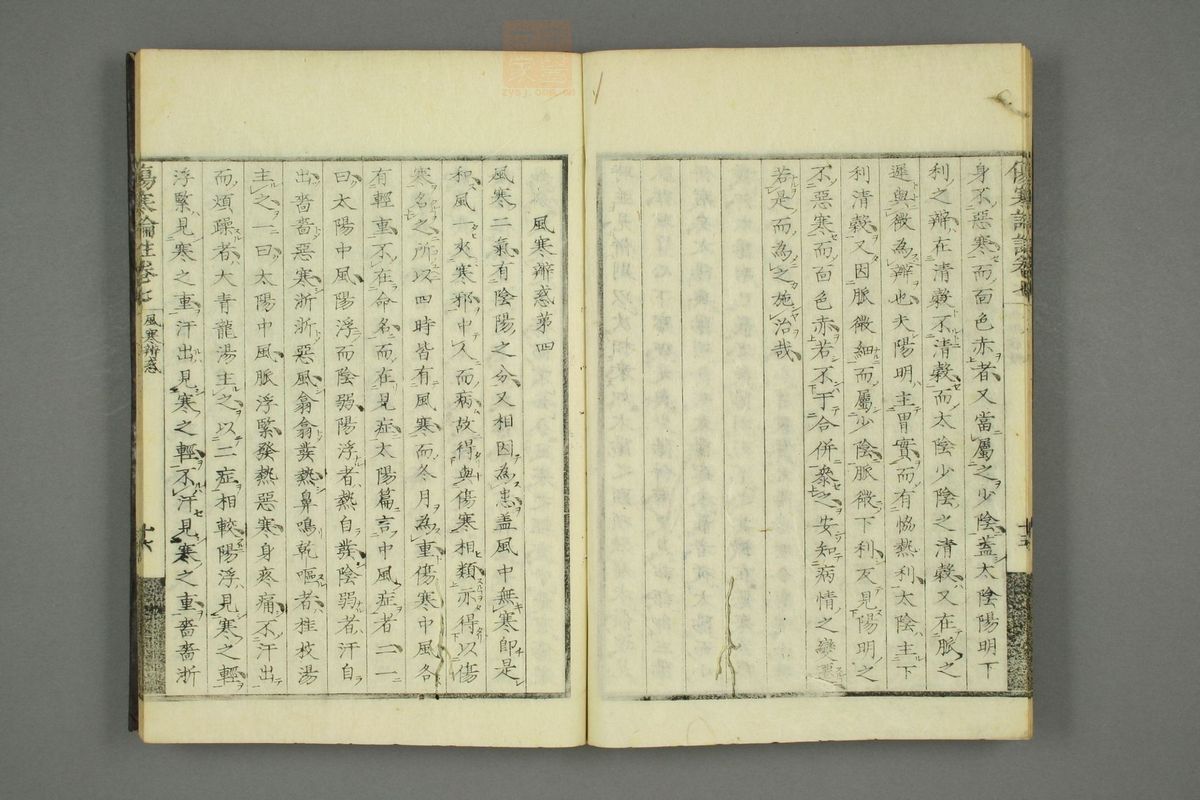 身不惡寒而面色赤者又當屬之少陰蓋太陰陽明下
利之辨在清穀不清穀而太陰少陰之清穀又在脈之
遲與微為辨也夫陽明主胃實而有恊熱利太陰主下
利清穀又因脈微細而屬少陰脈微下利反見陽明之
不惡寒而面色赤若不于合併參之安知病情之變
若是而為之施治哉
風寒辨惑第四
風寒二氣有陰陽之分又相因為患蓋風中無寒即是
和風一夾寒邪中人而病故得與傷寒相類亦得以傷
寒名之所以四時皆有風寒而冬月為重傷寒中風各
有輕重不在命名而在見症太陽篇言中風症者二一
曰太陽中風陽浮而陰弱陽浮者熱自發陰弱者汗自
出嗇嗇惡寒淅淅惡風翕翕發熱鼻鳴乾嘔者桂枝湯
主之一曰太陽中風脈浮緊發熱惡寒身疼痛不汗出
而煩躁者大青龍湯主之以二症相較陽浮見寒之輕
浮緊見寒之重汗出見寒之輕不汗見寒之重嗇嗇淅
傷寒論註卷
風寒辨惑
十六